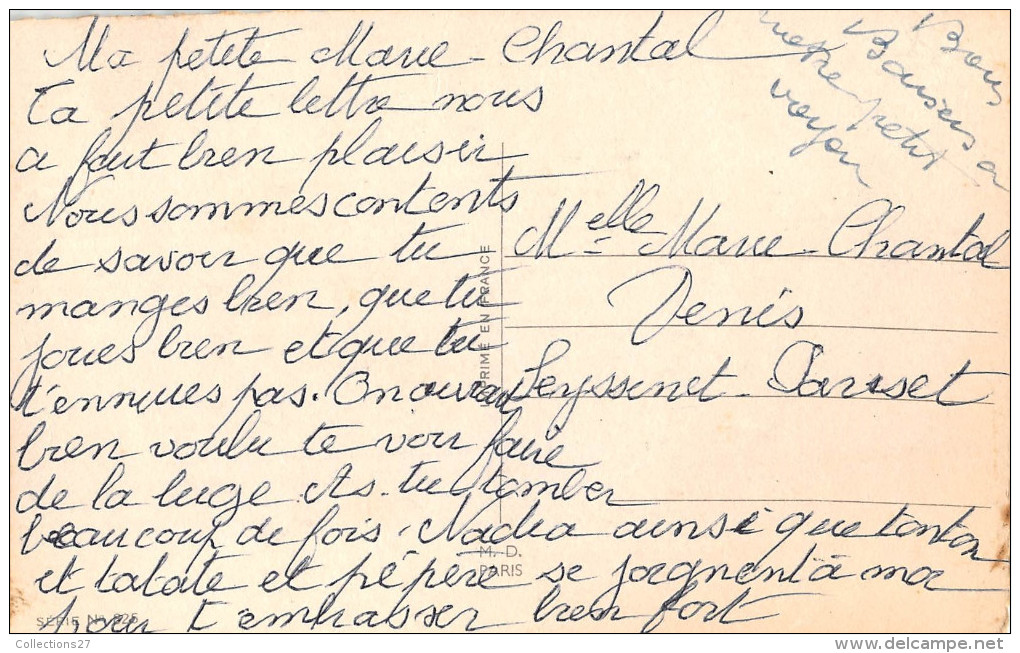 Ma petite Marie-Chantal
Ta petite lettre nous
a fait bien plaisir
Nous sommes contents
de savoir que tu
manges bien, que tu
joues bien et que tu
t'ennuies pas. On aurai
bien voulu te voir faire
de la luge As-tu tomber
beaucoup de fois. Nadia ainsi que tonton
et tatate et pépère se joignent à moi
pour t'embrasser bien fort
Bons
Baisers a
petit
voyou
Melle Marie-Chantal
Denis
Seyssinet-Pariset
IMPRIMÉ EN FRANCE
M. D.
PARIS
SÉRIE N° 825
Collections27
www.delcampe.net